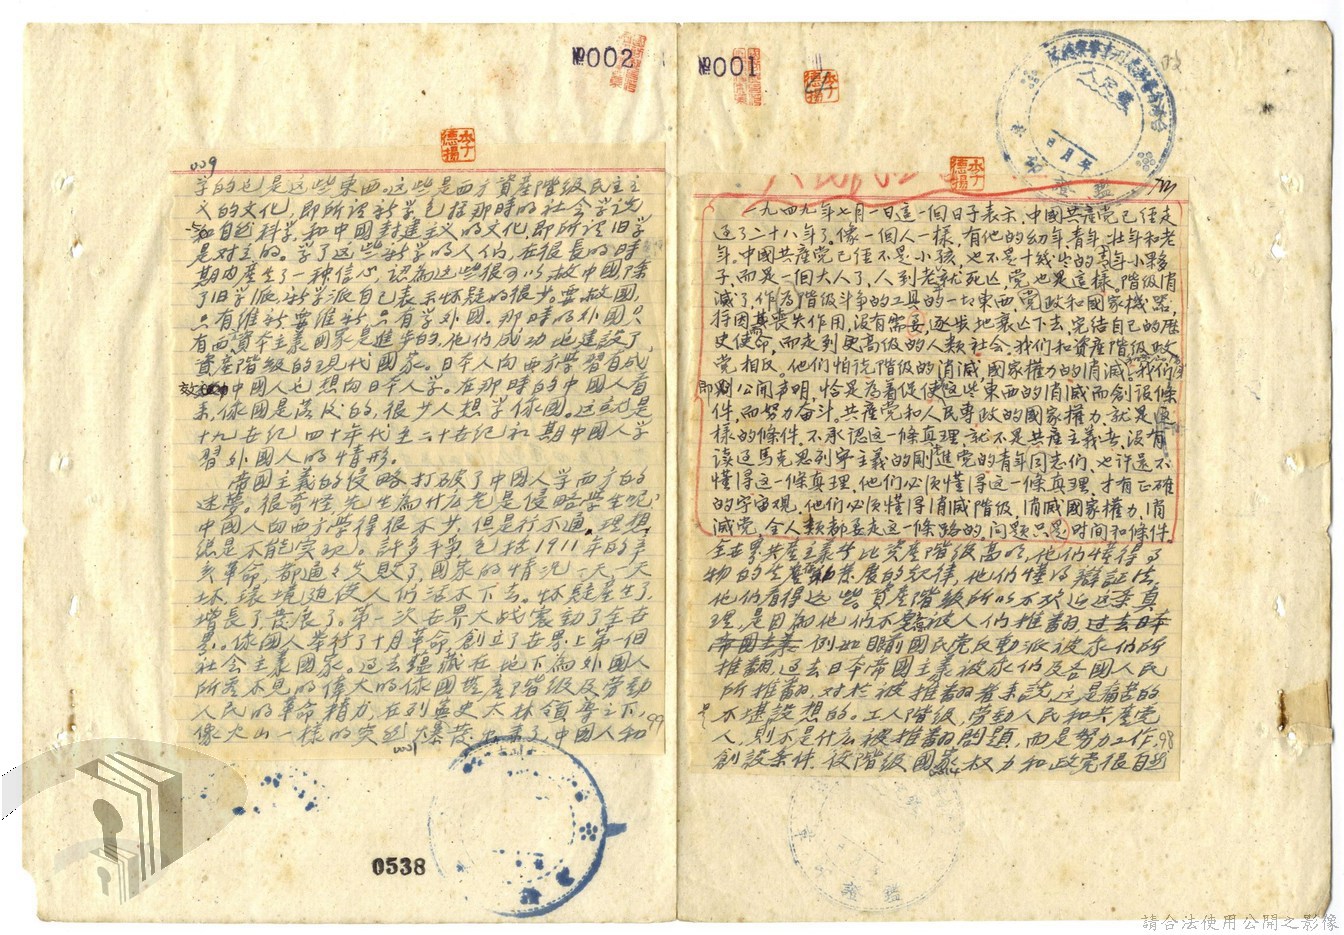 №001
一九四九年七月一日這一個日子表示,中國共產党已經走
过了二十八年了。像一個人一樣,有他的幼年青年,壯年和老
年。中國共產党已經不是小孩,也不是十幾岁的青年小夥
子,而是一個大人了,人到老就死亡,党也是這樣。階級消
滅了,作為階級斗争的工具的一切東西,党政和國家機器,
将因其喪失作用,没有需要,逐步地衰亡下去,完结自己的歷
史使命,而走到更高級的人類社会。我們和資產階級政
党相反。他们怕说階級的消滅,國家權力的消滅。我们
則公開声明,恰是為着促使這些東西的消滅而創设條
件,而努力奋斗。共產党和人民專政的國家權力,就是這
樣的條件。不承認这一條真理,就不是共產主義者,没有
读过馬克思列寧主義的剛進党的青年同志們,也许還不
懂得這一條真理,他們必须懂得這一條真理,才有正確
的宇宙觀。他們必须懂得消滅階级,消滅國家權力,消
滅党,全人類都要走這一條路的,问题只是时间和條件
全世界共產主義者比資產階級高明,他们懂得了
物的生產動發展的規律,他们懂得辯証法,
他们看得远些。資產階級所以不欢迎这条真
理,是因為他们不愿被人们推翻过去日本
帝國主義例如眼前國民党反動派被我们所
推翻,过去日本帝國主義被我们及各國人民
所推翻,对於被推翻者来說,这是痛苦的
不堪設想的。工人階級,劳動人民和共產党
人,則不是什么被推翻的問題,而是努力工作,98
創設条件,使階級國家权力和政党很自
№002
009
学的也是这些東西。这些是西方資產階級民主主
义的文化,即所謂新学,包括那時的社会学说
和自然科学,和中國封建主义的文化,即所謂旧学
是对立的。学了这些新学的人们,在很長的時
期内產生了一种信心,認為这些很可以救中國,除
了旧学派,新学派自己表示怀疑的很少。要救國,
只有維新,要維新,只有学外國。那時的外國只
有西方資本主義國家是進步的,他们成功地建設了
資產階級的現代國家。日本人向西方学習有成
效,中國人也想向日本人学。在那時的中國人看
来,俄國是落後的,很少人想学俄國。这就是
十九世紀四十年代至二十世紀初期中國人学
習外國人的情形。
帝国主義的侵略打破了中國人学西方的
迷夢。很奇怪,先生為什么老是侵略学生呢?
中國人向西方学得很不少,但是行不通,理想
總是不能实现。許多斗争,包括1911年的辛
亥革命,都通通失敗了,國家的情况一天一天
坏,環境迫使人们活不下去。怀疑產生了,
增長了,發展了。第一次世界大战震動了全世
界。俄國人举行了十月革命,創立了世界上第一個
社会主義國家。过去蕴藏在地下為外國人
所看不見的偉大的俄國無產階級及劳動
人民的革命精力,在列宁史大林領導之下,
像火山一樣的突然爆發出来了,中國人和
99
0538
請合法使用公開之影像